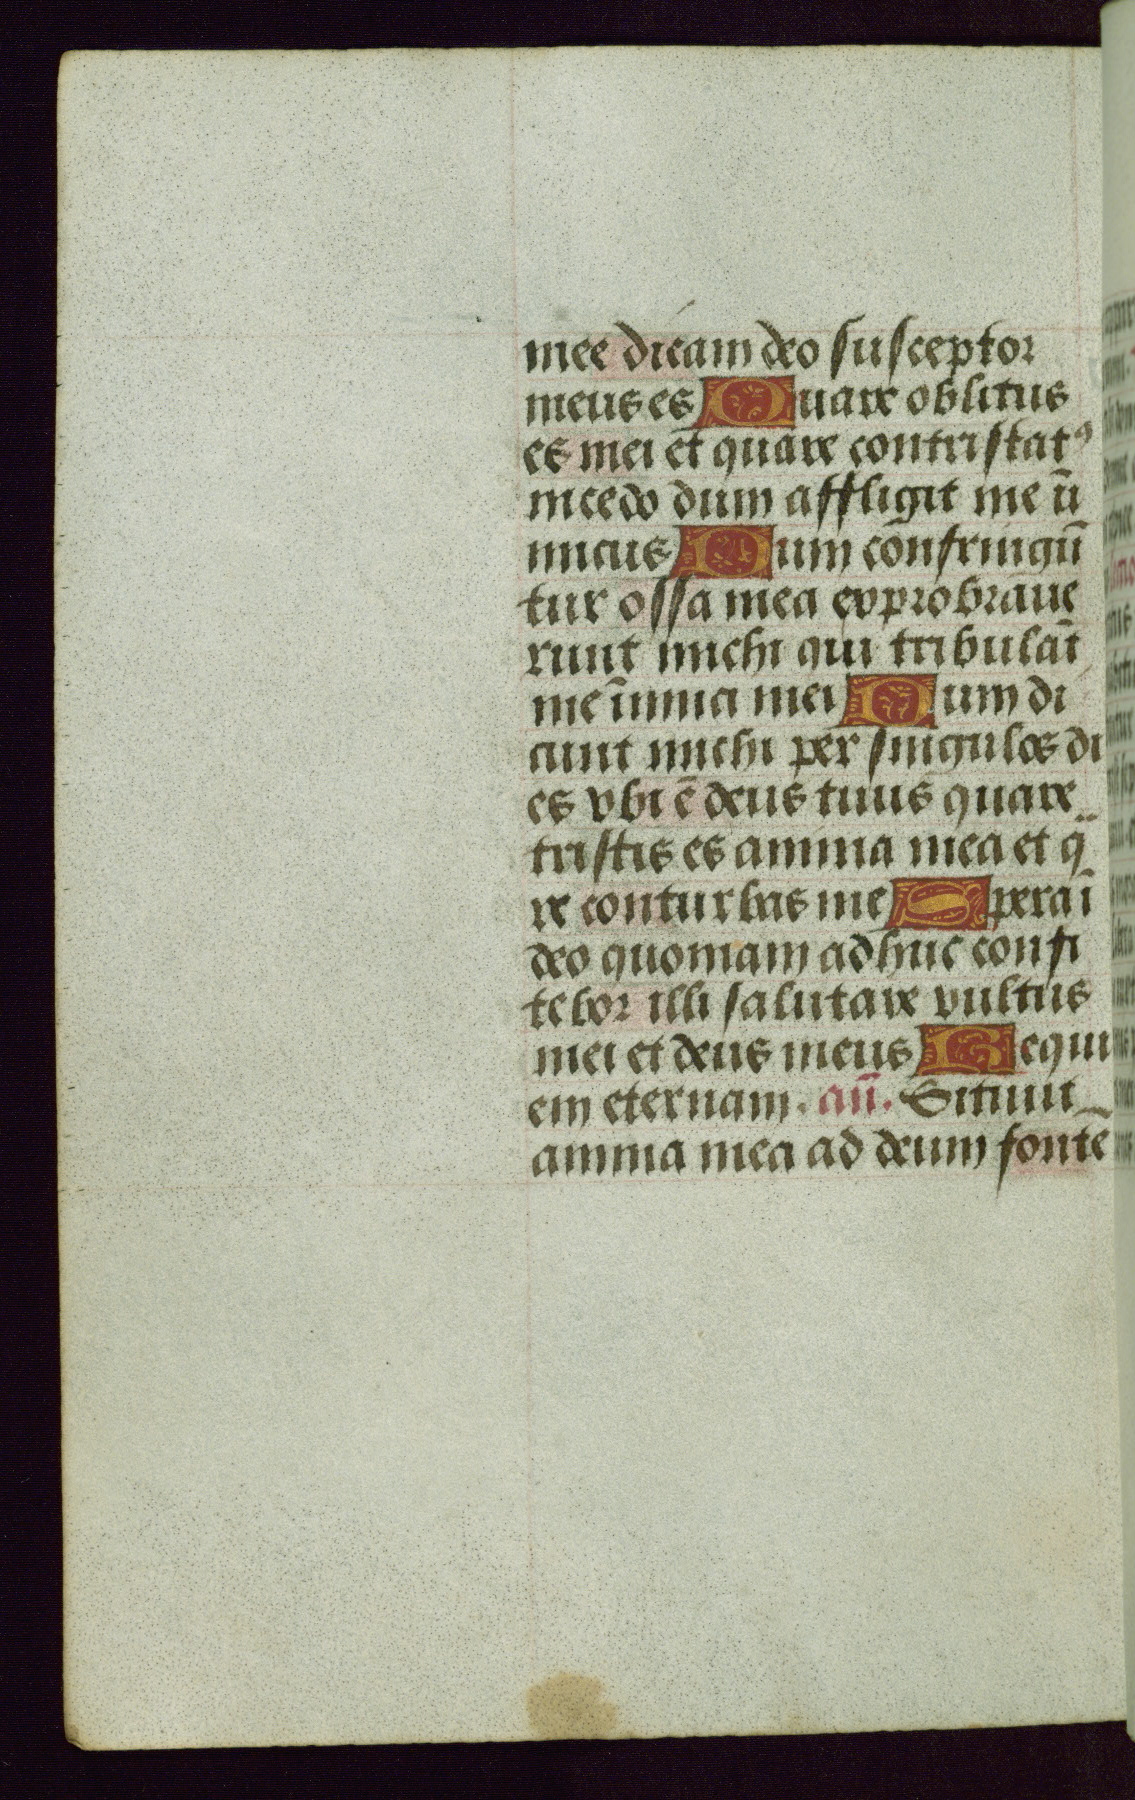 mee dicam deo susceptor
meus es Quare oblitus
es mei et quare contristatꝰ
incedo dum affligit me ĩi
micus Dum cõnfringũ
tur ossa mea exprobraue
runt michi qui tribulãt
me ĩimici mei Dum di
cunt michi per singulos di
es vbi ẽ deus tuus quare
tristis es anima mea et qͣ
re conturbas me Spera ĩ
deo quoniam adhuc confi
tebor illi salutare vultus
mei et deus meus Requi
em eternam. añ. Sitiuit
anima mea ad deum fontẽ